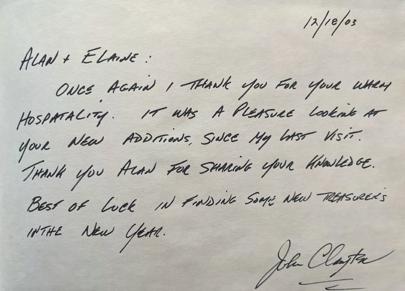 12/18/03
ALAN + ELAINE:
ONCE AGAIN I THANK YOU FOR YOUR WARM
HOSPATALITY. IT WAS A PLEASURE LOOKING AT
YOUR NEW ADDITIONS, SINCE MY LAST VISIT.
THANK YOU ALAN FOR SHARING YOUR KNOWLEDGE.
BEST OF LUCK IN FINDING SOME NEW TREASURERS
INTHE NEW YEAR.
John Clayton